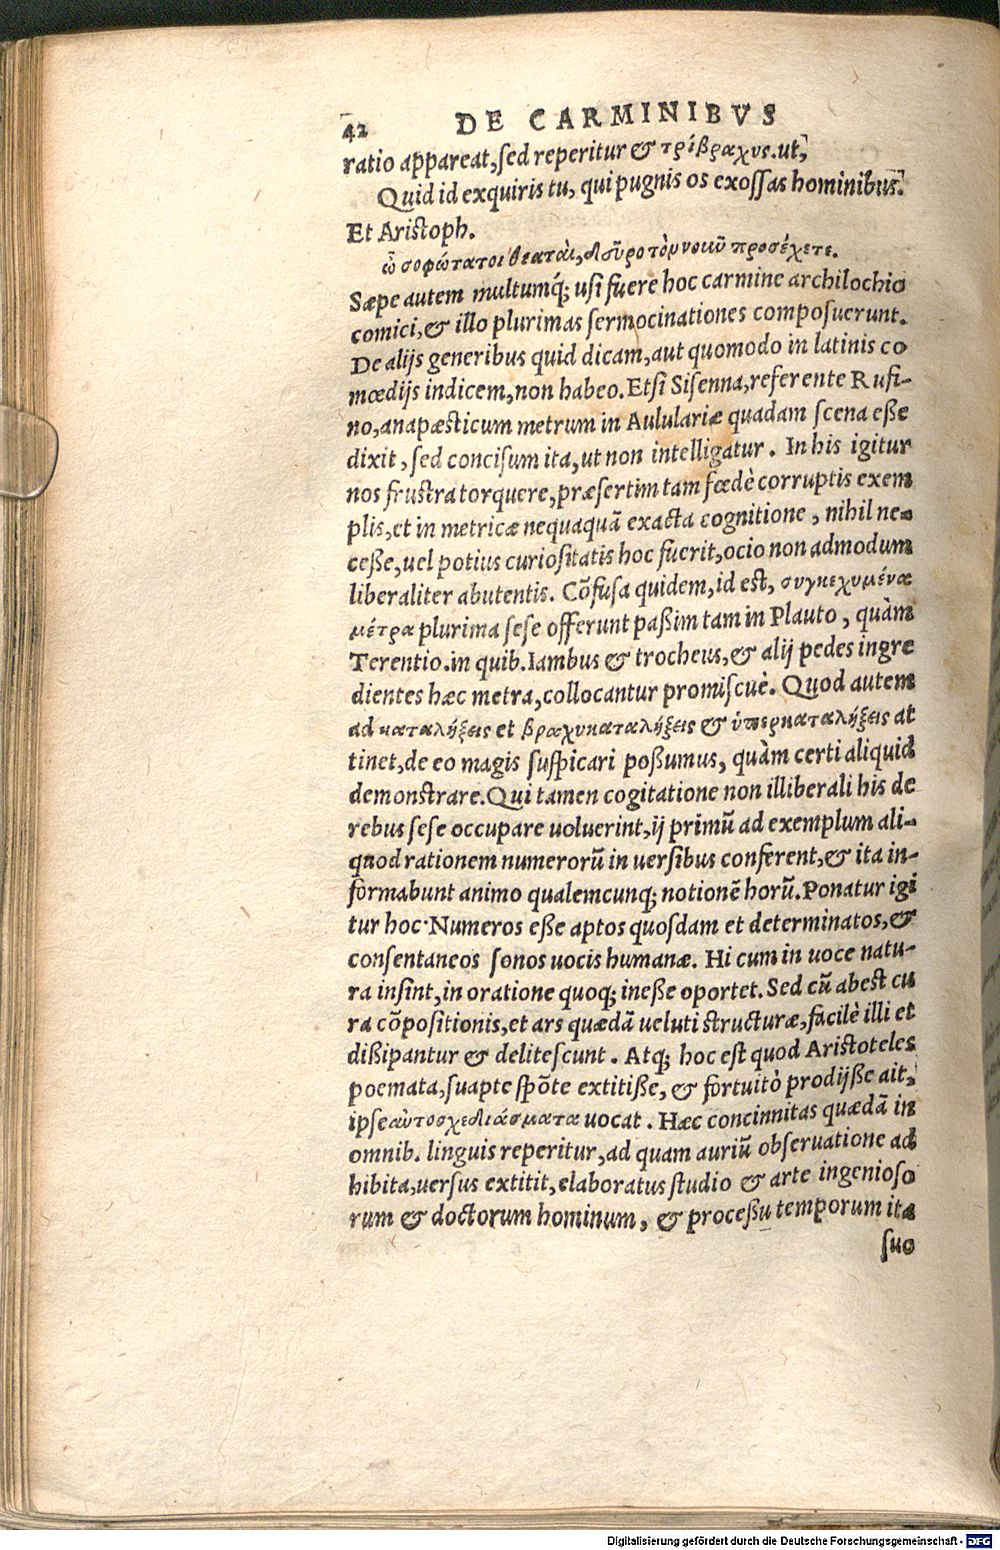 42 DE CARMINIBVS
ratio appareat, sed reperitur & τρίβραχυς. ut,
Quid id exquiris tu, qui pugnis os exossas hominibus.
Et Aristoph.
ὦ σοφώτατοι θεαταὶ, δεῦρο τὸν νοῦν προσέχετε.
Sæpe autem multumq́; usi fuere hoc carmine archilochio
comici, & illo plurimas sermocinationes composuerunt.
De alijs generibus quid dicam, aut quomodo in latinis co
mœdijs indicem, non habeo. Etsi Sisenna, referente Rufi-
no, anapæsticum metrum in Aululariæ quadam scena eße
dixit, sed concisum ita, ut non intelligatur. In his igitur
nos frustra torquere, præsertim tam fœdè corruptis exem
plis, et in metricæ nequaquā exacta cognitione, nihil ne-
ceße, uel potius curiositatis hoc fuerit, ocio non admodum
liberaliter abutentis. Cōfusa quidem, id est, συγκεχυμένα
μέτρα plurima sese offerunt paßim tam in Plauto, quàm
Terentio. in quib. Iambus & trocheus, & alij pedes ingre
dientes hæc metra, collocantur promiscuè. Quod autem
ad καταλήξεις et βραχυκαταλήξεις & ὑπερκαταλήξεις at
tinet, de eo magis suspicari poßumus, quàm certi aliquid
demonstrare. Qui tamen cogitatione non illiberali his de
rebus sese occupare uoluerint, ij primū ad exemplum ali-
quod rationem numerorū in uersibus conferent, & ita in-
formabunt animo qualemcunq; notionē horū. Ponatur igi
tur hoc. Numeros eße aptos quosdam et determinatos, &
consentaneos sonos uocis humanæ. Hi cum in uoce natu-
ra insint, in oratione quoq; ineße oportet. Sed cū abest cu
ra cōpositionis, et ars quædā ueluti structuræ, facilè illi et
dißipantur & delitescunt. Atq; hoc est quod Aristoteles
poemata, suapte spōte extitiße, & fortuitò prodijße ait,
ipse αὐτοσχεδιάσματα uocat. Hæc concinnitas quædā in
omnib. linguis reperitur, ad quam auriū obseruatione ad
hibita, uersus extitit, elaboratus studio & arte ingenioso
rum & doctorum hominum, & proceßu temporum ita
suo
Digitalisierung gefördert durch die Deutsche Forschungsgemeinschaft - DFG